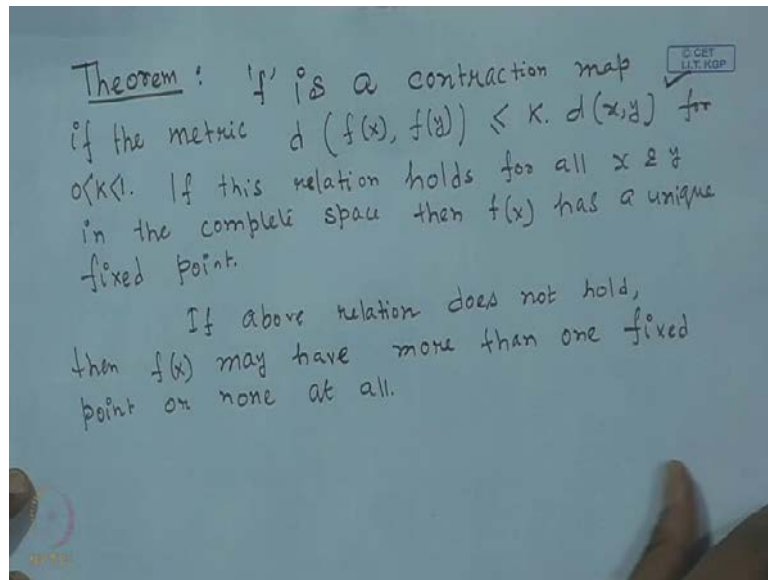 Theorem: 'f' is a contraction map
© CET
I.I.T. KGP
if the metric d (f(x), f(y)) ≤ K. d(x,y) for
0<K<1. If this relation holds for all x & y
in the complete space then f(x) has a unique
fixed point.
If above relation does not hold,
then f(x) may have more than one fixed
point or none at all.
NPTEL